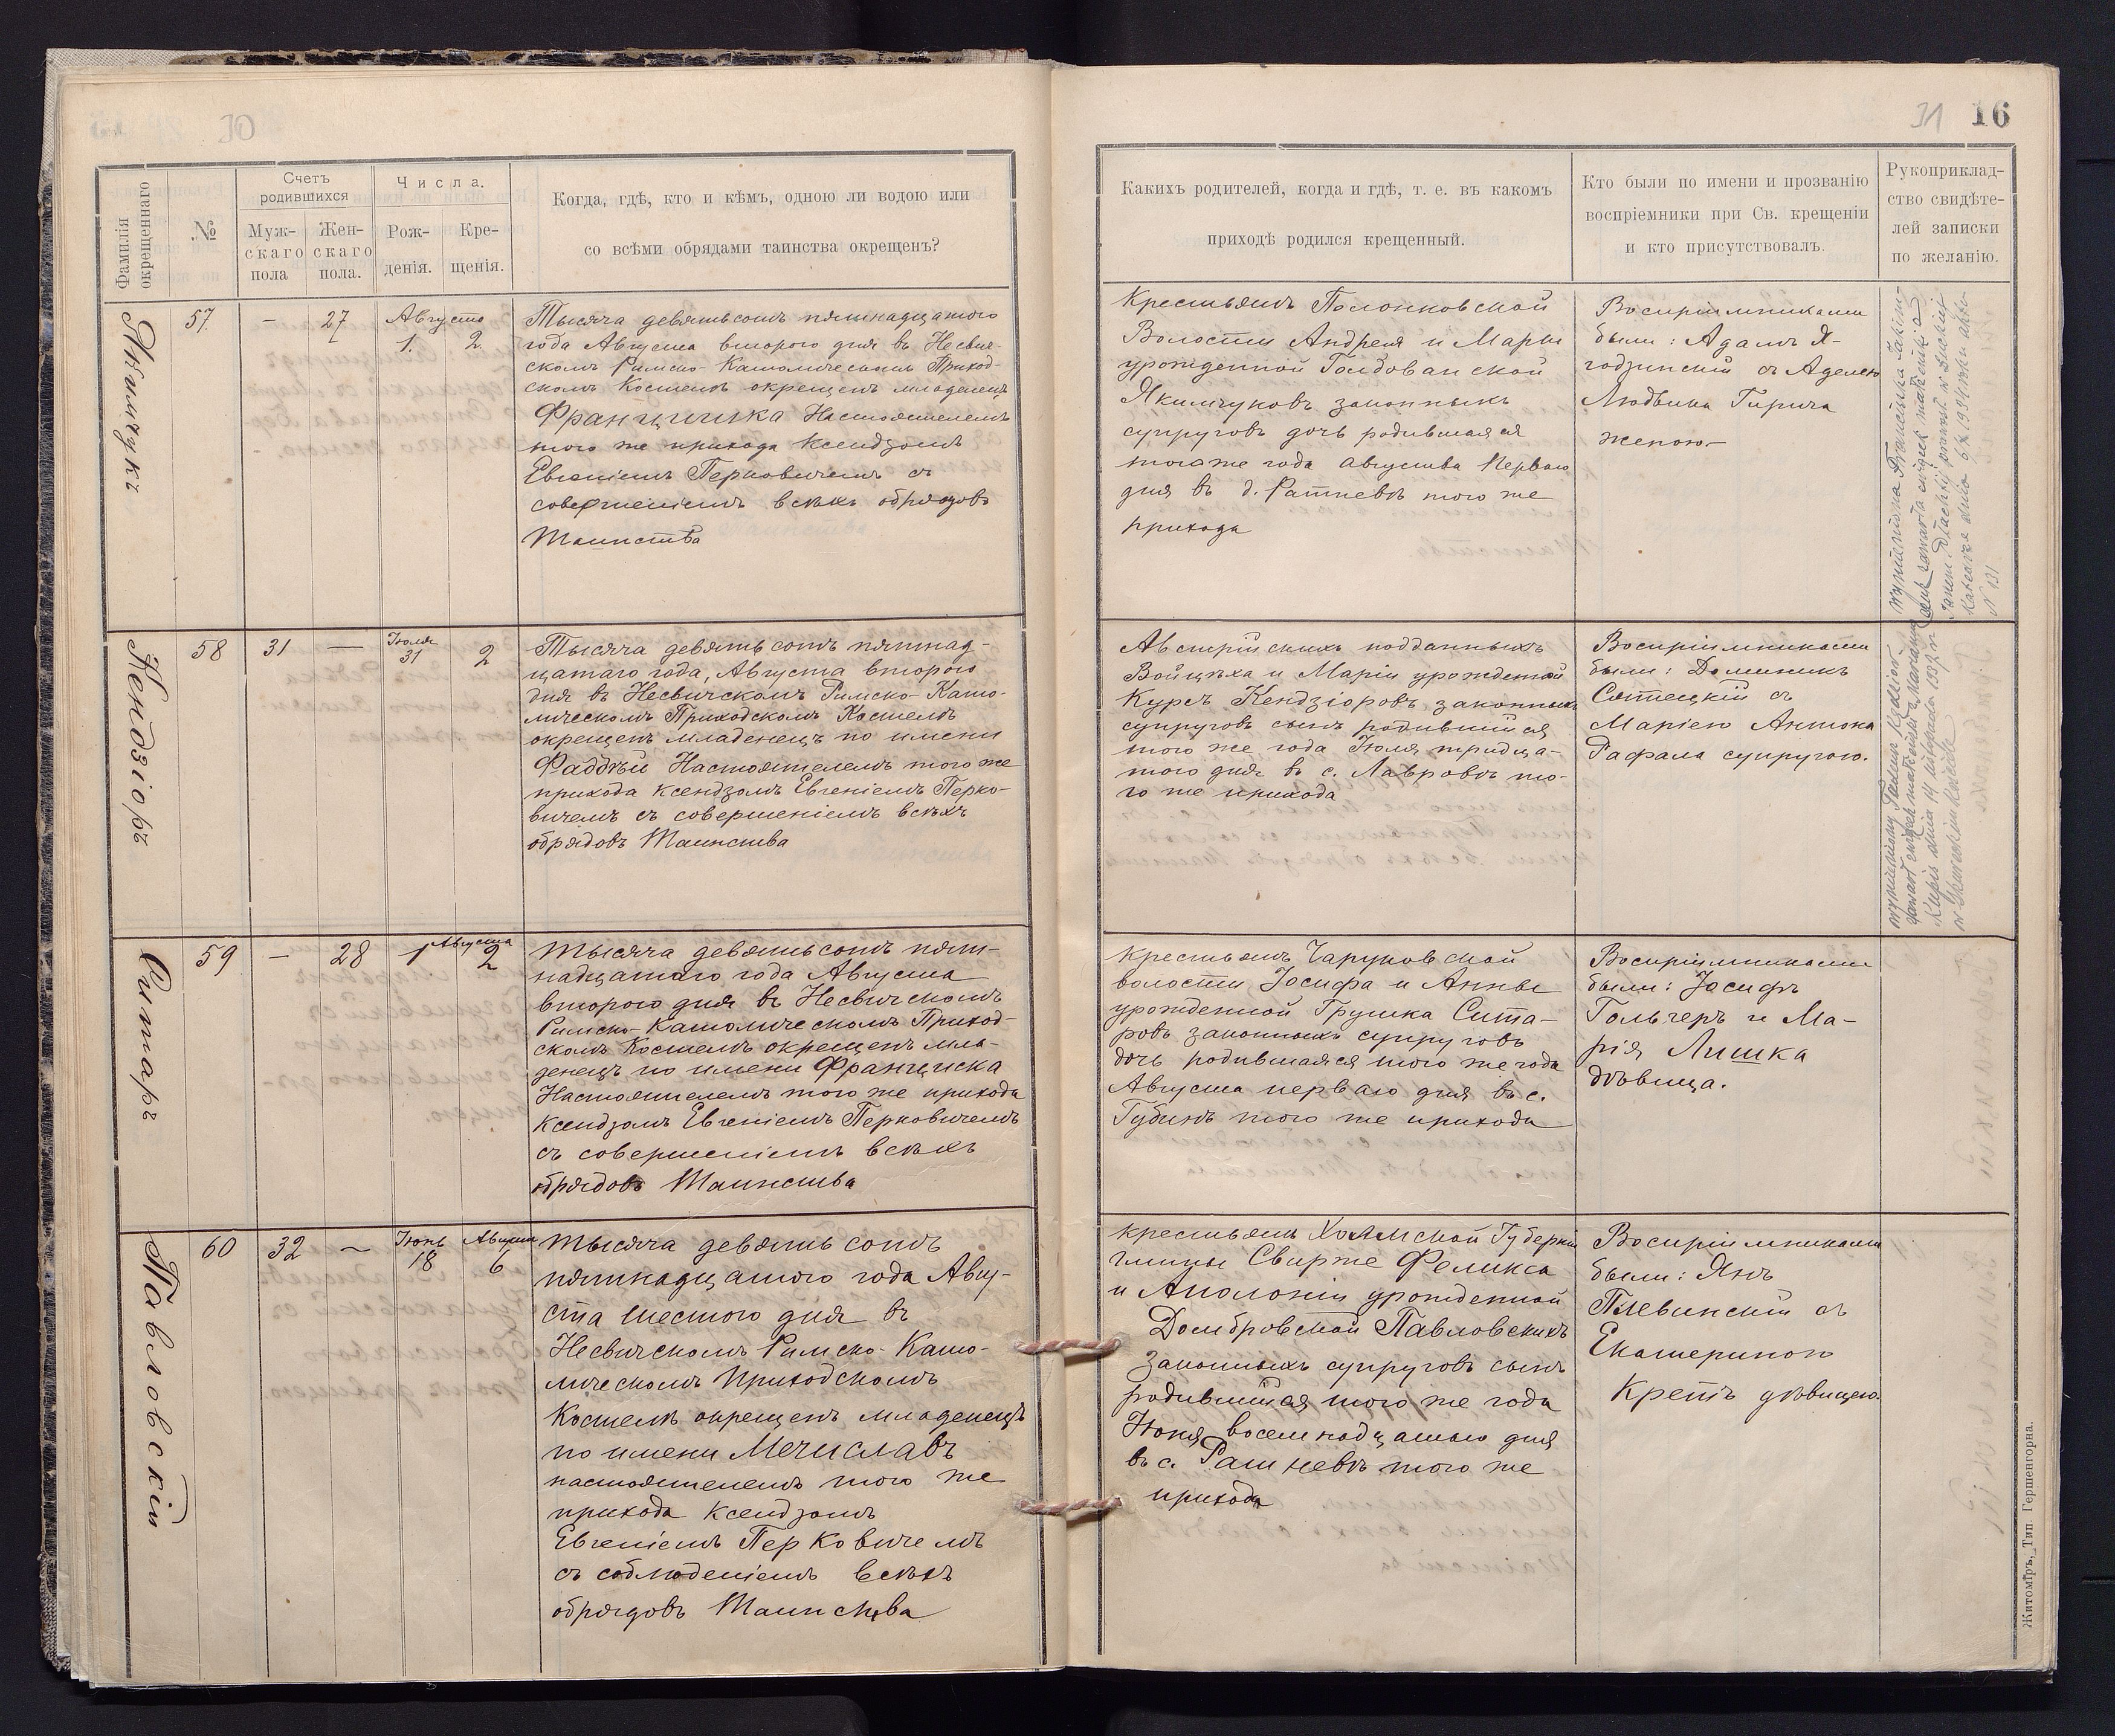 30
Фамилія окрещеннаго
№
Счетъ родившихся
Муж-
скаго
пола
Жен-
скаго
пола.
Числа.
Рож-
денія.
Кре-
щенія.
Когда, гдѣ, кто и кѣмъ, одною ли водою или
со всѣми обрядами таинства окрещенъ?
57.
—
27
Августа
1.
2
Тысяча девятьсотъ пятнадцатого
года Августа второго дня въ Несвич-
скомъ Римско-Католическомъ Приход-
скомъ Костелѣ окрещенъ младенецъ
Францишка Настоятелемъ
того же прихода Ксендзомъ
Евгеніемъ Перковичемъ съ
совершеніемъ всѣхъ обрядовъ
Таинства
Кендзіоръ
58
31
—
Іюля
31
2
Тысяча девятьсотъ пятнад-
цатаго года, Августа второго
дня въ Несвичскомъ Римско-Като-
лическомъ Приходскомъ Костелѣ
окрещенъ младенецъ по имени
Фаддѣй Настоятелемъ того же
прихода Ксендзомъ Евгеніемъ Перко-
вичемъ съ совершеніемъ всѣхъ
обрядовъ Таинства
Ситаръ
59
—
28
Августа
1
2
Тысяча девятьсотъ пят-
надцатаго года Августа
второго дня въ Несвичскомъ
Римско-Католическомъ Приход-
скомъ Костелѣ окрещенъ мла-
денецъ по имени Франциска
Настоятелемъ того же прихода
Ксендзомъ Евгеніемъ Перковичемъ
съ совершеніемъ всѣхъ
обрядовъ Таинства
Павловскій
60
32
~
Іюнь
18
Августа
6
Тысяча девятьсотъ
пятнадцатого года Авгу-
ста шестого дня въ
Несвичскомъ Римско-Като-
лическомъ Приходскомъ
Костелѣ окрещенъ младенецъ
по имени Мечиславъ
настоятелемъ того же
прихода Ксендзомъ
Евгеніемъ Перковичемъ
съ соблюденіемъ всѣхъ
обрядовъ Таинства
31
16
Какихъ родителей, когда и гдѣ, т. е. въ какомъ
приходѣ родился крещенный.
Кто были по имени и прозванію
воспріемники при Св. крещеніи
и кто присутствовалъ.
Рукоприклад-
ство свидѣте-
лей записки
по желанію.
Крестьянъ Полонковской
Волости Андрея и Маріи
урожденной
Якимчуковъ законныхъ
супруговъ дочь родившаяся
того же года августа перваго
дня въ д. Ратневѣ того же
прихода
Воспріимниками
были: Адамъ Я-
годзинскій съ Аделею
Людвика Гирича
женою.—
Австрійскихъ подданныхъ
Войцѣха и Маріи урожденной
Курсъ Кендзіоровъ законныхъ
супруговъ сынъ родившійся
того же года Іюля тридца-
того дня въ с. Лавровѣ то-
го же прихода
Воспріимниками
были: Доминикъ
съ
Маріею Антона
Рафала супругою.
Крестьянъ Чаруковской
волости Іосифа и Анны
урожденной Грушка Сита-
ровъ законныхъ супруговъ
дочь родившаяся того же года
Августа перваго дня въ с.
Губинъ того же прихода
Воспріимниками
были: Іосифъ
Гольчеръ и Ма-
рія Лишка
дѣвица.
Крестьянъ Холмской Губерніи
гмины Свирже Феликса
и Аполоніи урожденной
Домбровской Павловскихъ
законныхъ супруговъ сынъ
родившійся того же года
Іюня восемнадцатаго дня
въ с. Ратневѣ того же
прихода
Воспріимниками
были: Янъ
Плевинскій съ
Екатериною
Кретъ дѣвицею.
N 131
Житоміръ, Тип. Гершенгорна.